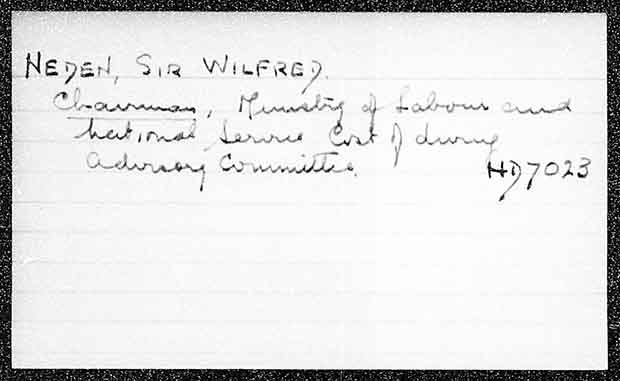 NEDEN, SIR WILFRED.
Chairman, Ministry of Labour and
National Service Cost of Living
Advisory Committee. HD7023